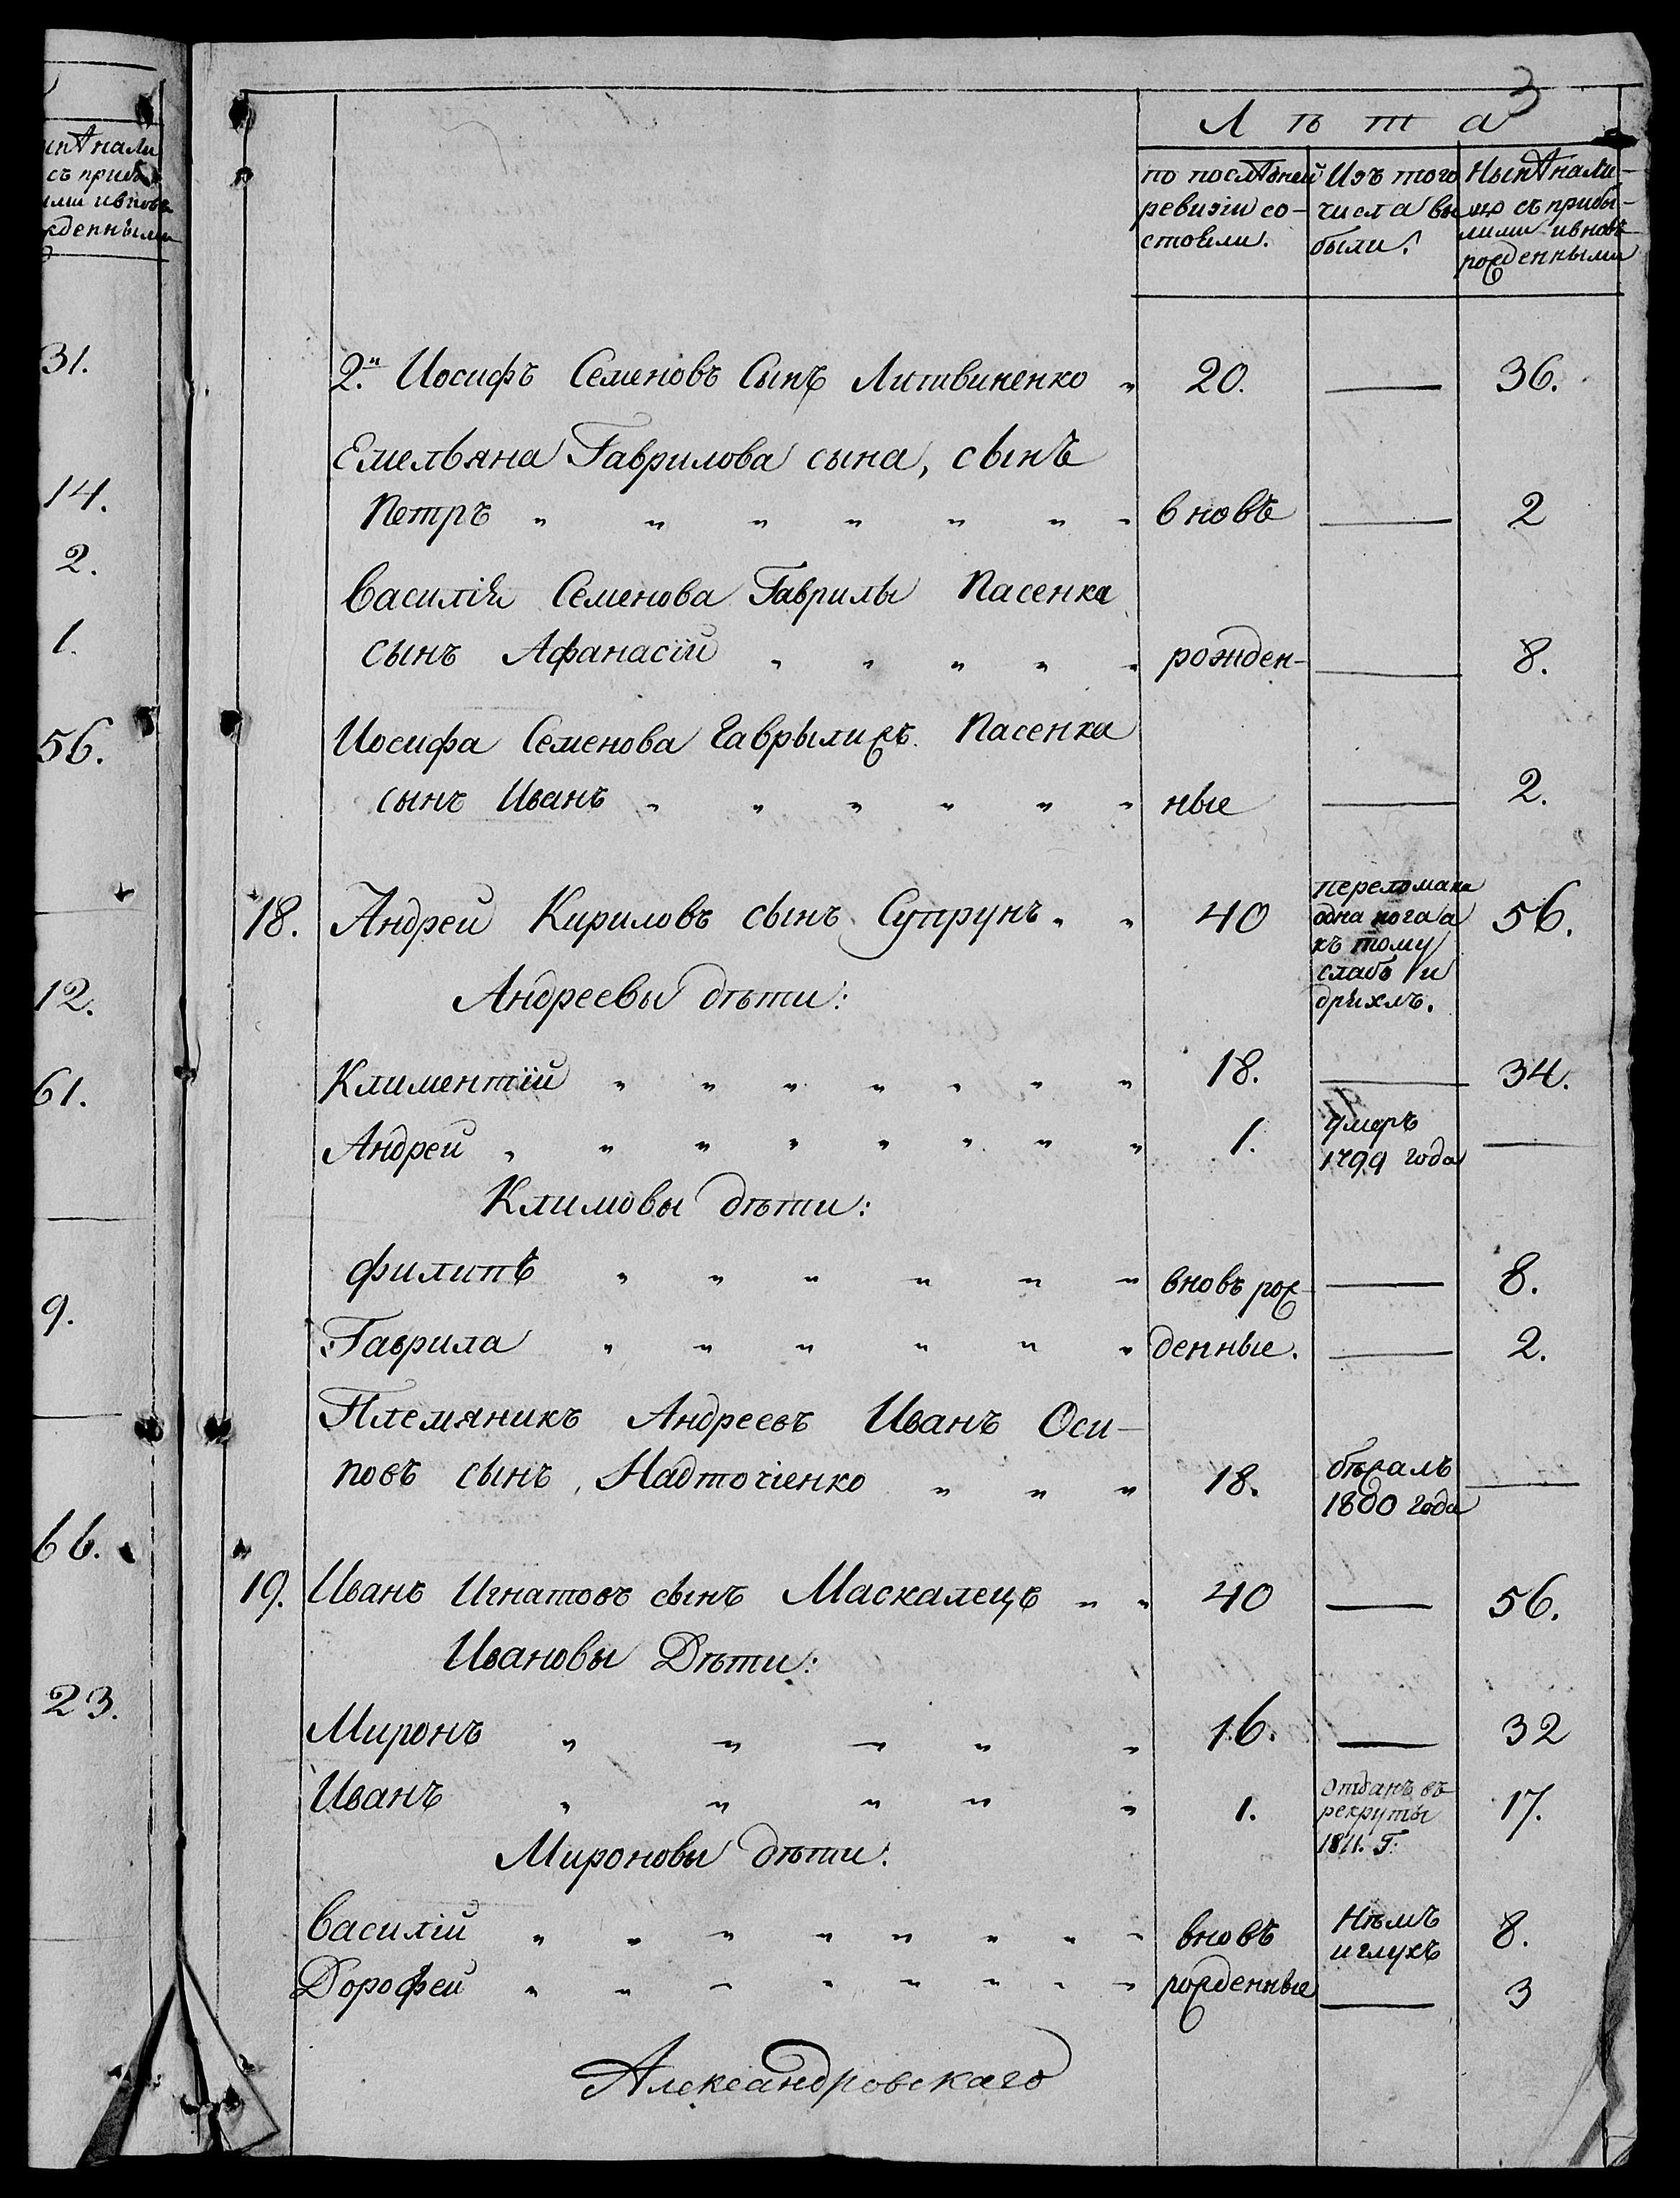 3
Лѣта
по послѣдней ревизіи состояли.
Изъ того числа выбыли.
Нынѣ налицо съ прибылыми и вновь рожденными
2.й Иосифъ Семеновъ Сынъ Литвиненко „ 20. — 36.
Емельяна Гаврилова сына, сынъ
Петръ „ „ „ „ „ „ „ вновь — 2
Василія Семенова Гаврилы Пасенка
сынъ Афанасій „ „ „ „ „ рожден- — 8.
Иосифа Семенова Пасенка
сынъ Иванъ „ „ „ „ „ „ ные — 2.
18. Андрей Кириловъ сынъ Супрунъ „ „ 40 переломана одна нога а къ тому слабъ и дряхлъ. 56.
Андреевы дѣти:
Климентій „ „ „ „ „ „ „ 18. — 34.
Андрей „ „ „ „ „ „ „ „ 1. умеръ 1799 года —
Климовы дѣти:
Филипъ „ „ „ „ „ „ вновь рож- — 8.
Гаврила „ „ „ „ „ „ денные. — 2.
Племяникъ Андреевъ Иванъ Оси-
повъ сынъ, Надточіенко „ „ „ 18. бѣжалъ 1800 года —
19. Иванъ Игнатовъ сынъ Маскалецъ „ „ 40 — 56.
Ивановы Дѣти:
Миронъ „ „ „ „ „ 16. — 32
Иванъ „ „ „ „ „ 1. Отданъ въ рекруты 1811. Г. 17.
Мироновы дѣти:
Василій „ „ „ „ „ „ „ „ вновь Нѣмъ и глухъ 8.
Дорофей „ „ „ „ „ „ „ „ рожденные — 3
Александровскаго
31.
14.
2.
1.
56.
12.
61.
9.
66.
23.